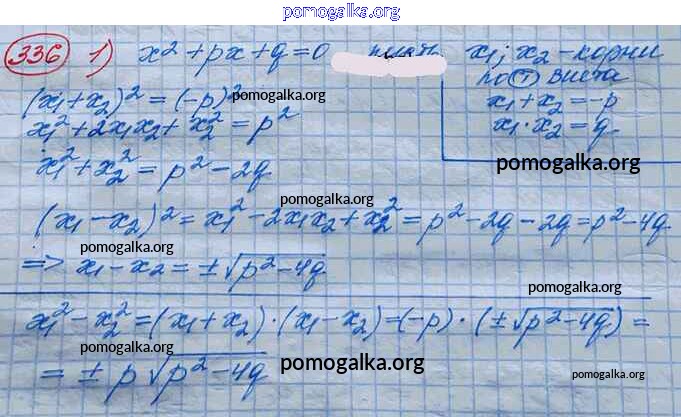 pomogalka.org
336 1) x² + px + q = 0 пусть x₁; x₂ - корни
по т Виета
(x₁ + x₂)² = (-p)² pomogalka.org x₁ + x₂ = -p
x₁² + 2x₁x₂ + x₂² = p² x₁ · x₂ = q
x₁² + x₂² = p² - 2q pomogalka.org
pomogalka.org
(x₁ - x₂)² = x₁² - 2x₁x₂ + x₂² = p² - 2q - 2q = p² - 4q
pomogalka.org
=> x₁ - x₂ = ±√p² - 4q pomogalka.org
x₁² - x₂² = (x₁ + x₂) · (x₁ - x₂) = (-p) · (±√p² - 4q) =
pomogalka.org
= ± p √p² - 4q pomogalka.org pomogalka.org